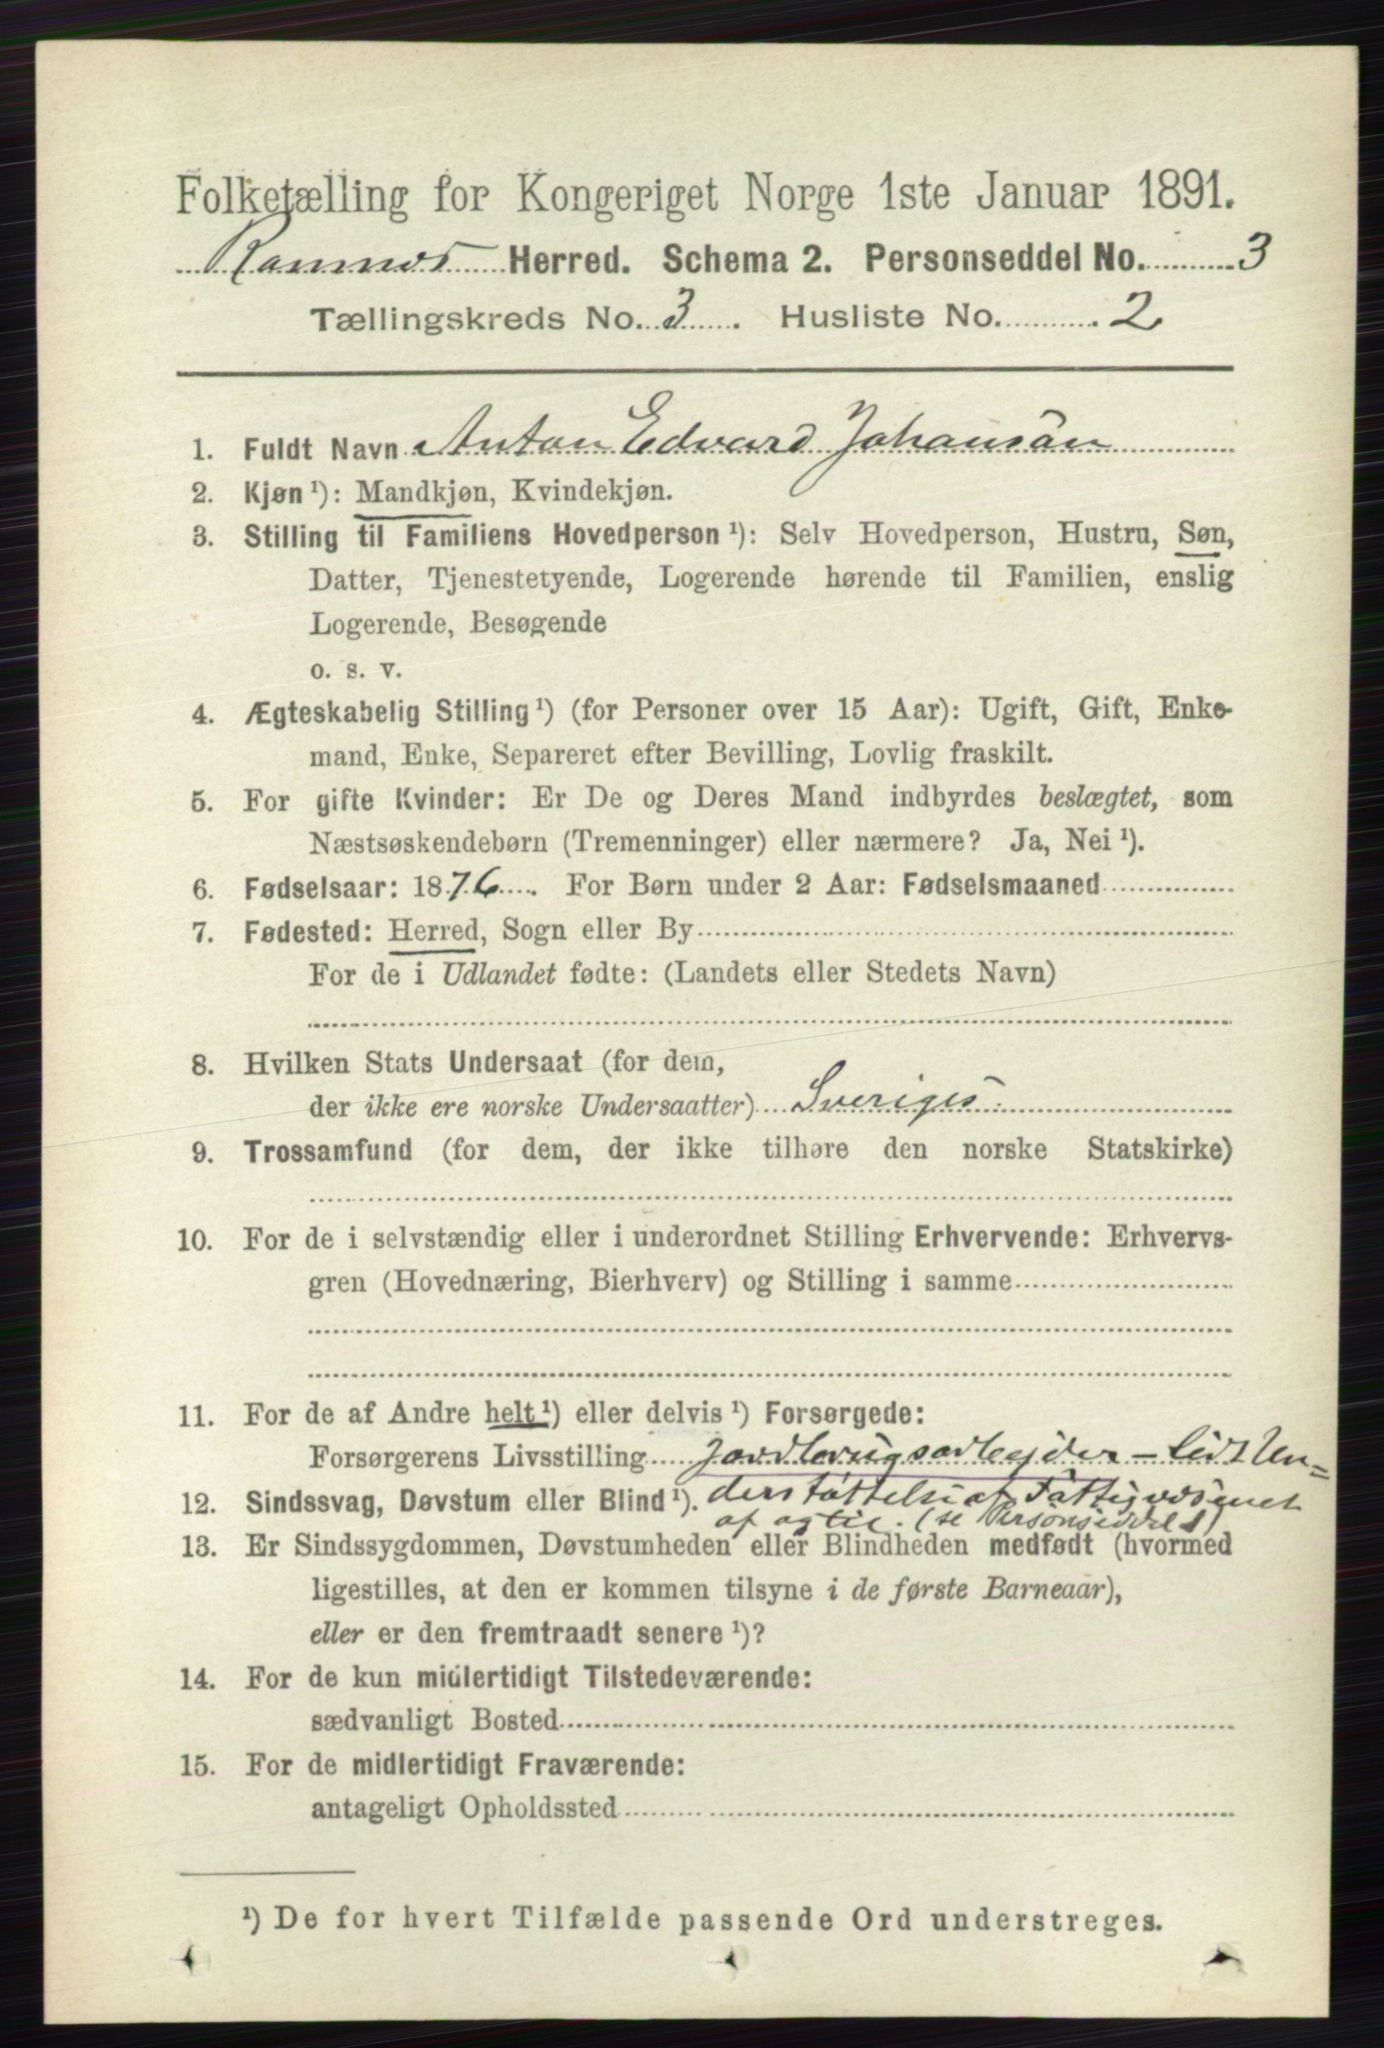 Folketælling for Kongeriget Norge 1ste Januar 1891.
Ramnes Herred. Schema 2. Personseddel No. 3
Tællingskreds No. 3. Husliste No. 2
1. Fuldt Navn Anton Edvard Johansön
2. Kjøn ¹): Mandkjøn, Kvindekjøn.
3. Stilling til Familiens Hovedperson ¹): Selv Hovedperson, Hustru, Søn,
Datter, Tjenestetyende, Logerende hørende til Familien, enslig
Logerende, Besøgende
o. s. v.
4. Ægteskabelig Stilling ¹) (for Personer over 15 Aar): Ugift, Gift, Enke-
mand, Enke, Separeret efter Bevilling, Lovlig fraskilt.
5. For gifte Kvinder: Er De og Deres Mand indbyrdes beslægtet, som
Næstsøskendebørn (Tremenninger) eller nærmere? Ja, Nei ¹).
6. Fødselsaar: 1876. For Børn under 2 Aar: Fødselsmaaned
7. Fødested: Herred, Sogn eller By
For de i Udlandet fødte: (Landets eller Stedets Navn)
8. Hvilken Stats Undersaat (for dem,
der ikke ere norske Undersaatter) Sveriges
9. Trossamfund (for dem, der ikke tilhøre den norske Statskirke)
10. For de i selvstændig eller i underordnet Stilling Erhvervende: Erhvervs-
gren (Hovednæring, Bierhverv) og Stilling i samme
11. For de af Andre helt ¹) eller delvis ¹) Forsørgede:
Forsørgerens Livsstilling Jordbrugsarbejder – lidt Un=
12. Sindssvag, Døvstum eller Blind ¹). derstøttelse af Fattigvæsenet
af og til. (se Personseddel 1)
13. Er Sindssygdommen, Døvstumheden eller Blindheden medfødt (hvormed
ligestilles, at den er kommen tilsyne i de første Barneaar),
eller er den fremtraadt senere ¹)?
14. For de kun midlertidigt Tilstedeværende:
sædvanligt Bosted
15. For de midlertidigt Fraværende:
antageligt Opholdssted
¹) De for hvert Tilfælde passende Ord understreges.